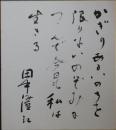 かぎりあるいのちを
限りないのぞみに
つないで今日も私は
生きる
田中澄江